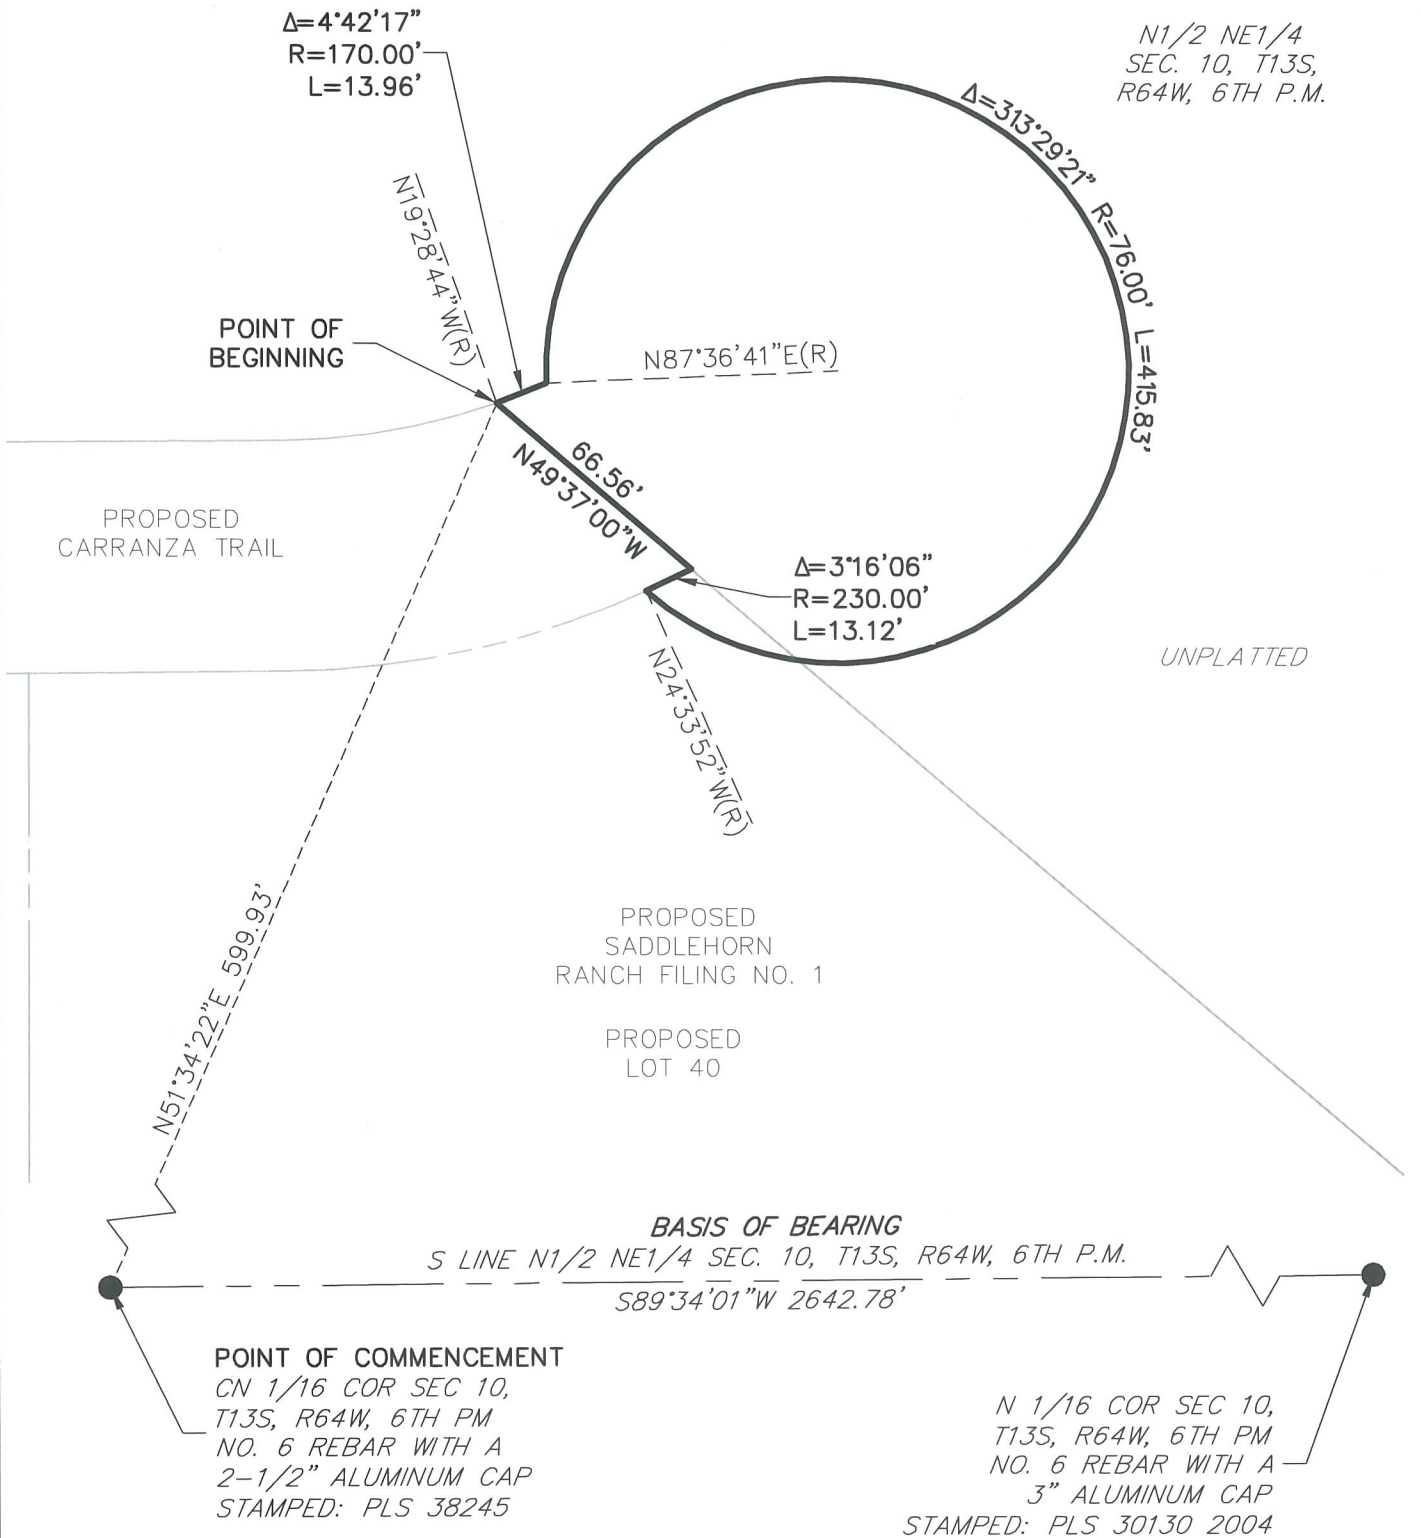 Δ=4°42'17"
R=170.00'
L=13.96'
N1/2 NE1/4
SEC. 10, T13S,
R64W, 6TH P.M.
Δ=313°29'21" R=76.00' L=415.83'
N19°28'44"W(R)
POINT OF
BEGINNING
N87°36'41"E(R)
66.56'
N49°37'00"W
PROPOSED
CARRANZA TRAIL
Δ=3°16'06"
R=230.00'
L=13.12'
UNPLATTED
N24°33'52"W(R)
N51°34'22"E 599.93'
PROPOSED
SADDLEHORN
RANCH FILING NO. 1
PROPOSED
LOT 40
BASIS OF BEARING
S LINE N1/2 NE1/4 SEC. 10, T13S, R64W, 6TH P.M.
S89°34'01"W 2642.78'
POINT OF COMMENCEMENT
CN 1/16 COR SEC 10,
T13S, R64W, 6TH PM
NO. 6 REBAR WITH A
2-1/2" ALUMINUM CAP
STAMPED: PLS 38245
N 1/16 COR SEC 10,
T13S, R64W, 6TH PM
NO. 6 REBAR WITH A
3" ALUMINUM CAP
STAMPED: PLS 30130 2004